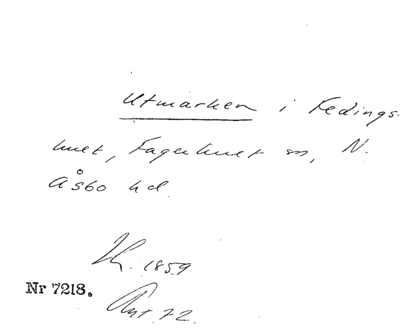 Utmarken i Fedings-
hult, Fagerhult sn, N.
Åsbo hd.
Hk. 1859
Nr 7218.
Ant. 72.